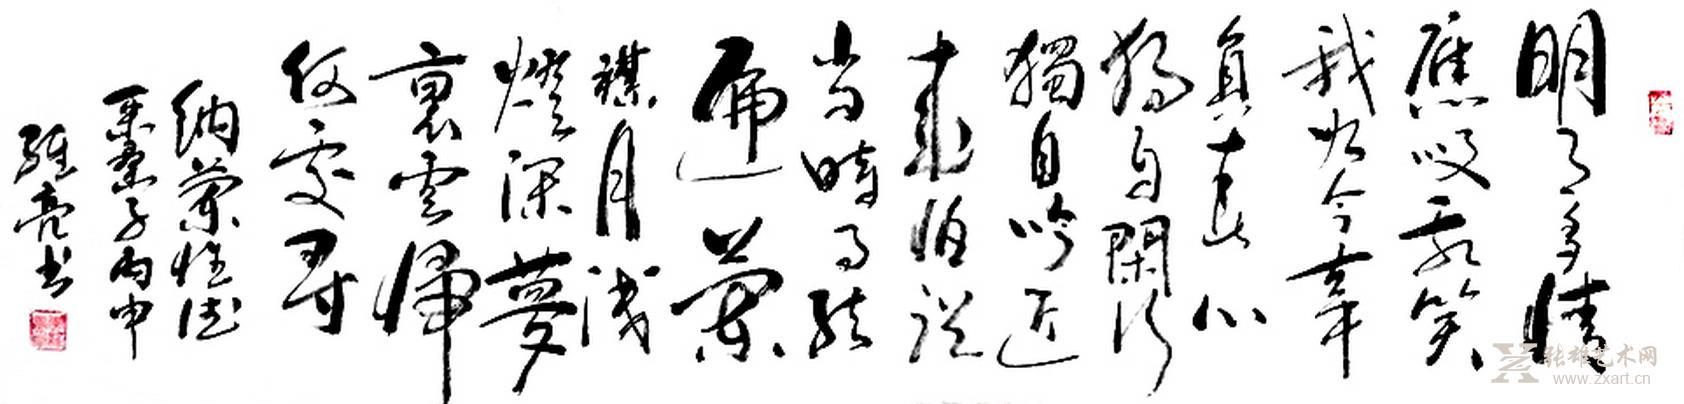 明月多情
應咲我笑
我如今辜
負春心
獨自閑行
獨自吟近
來怕說
当時事結
遍蘭
襟月淺
燈深夢
裏雲歸
何處尋
納蘭性德
采桑子丙申
亮书
张雄艺术网
www.zxart.cn